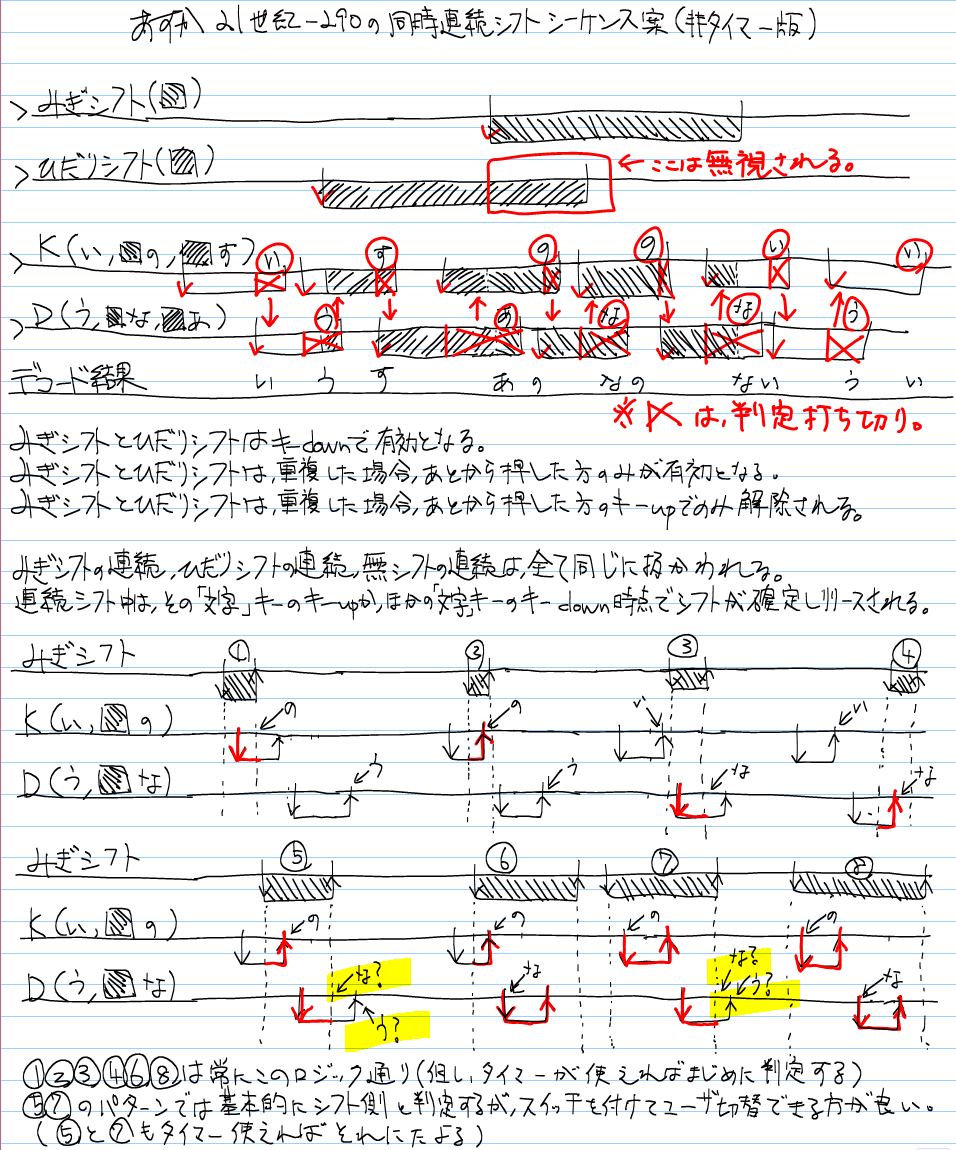 あすか21世紀-290の同時連続シフトシーケンス案(非タイマー版)
>みぎシフト( )
>ひだりシフト( )
←ここは無視される。
>K(い, の, す)
い す の の い い
>D(う, な, あ)
う あ な な う
デコード結果 い う す あの なの ない う い
※ は,判定打ち切り。
みぎシフトとひだりシフトはキーdownで有効となる。
みぎシフトとひだりシフトは,重複した場合,あとから押した方のみが有効となる。
みぎシフトとひだりシフトは,重複した場合,あとから押した方のキーupでのみ解除される。
みぎシフトの連続,ひだりシフトの連続,無シフトの連続は,全て同じに扱かわれる。
連続シフト中は,その「文字」キーのキーupか,ほかの「文字」キーのキーdown時点でシフトが確定しリリースされる。
みぎシフト ① ③ ③ ④
K(い, の) の の い い
D(う, な) う う な な
みぎシフト ⑤ ⑥ ⑦ ⑧
K(い, の) の の の の
D(う, な) な? う? な な? う? な
①②③④⑥⑧は常にこのロジック通り(但し,タイマーが使えればまじめに判定する)
⑤⑦のパターンでは基本的にシフト側と判定するが,スイッチを付けてユーザ切替できる方が良い。
(⑤と⑦もタイマー使えればそれにたよる)